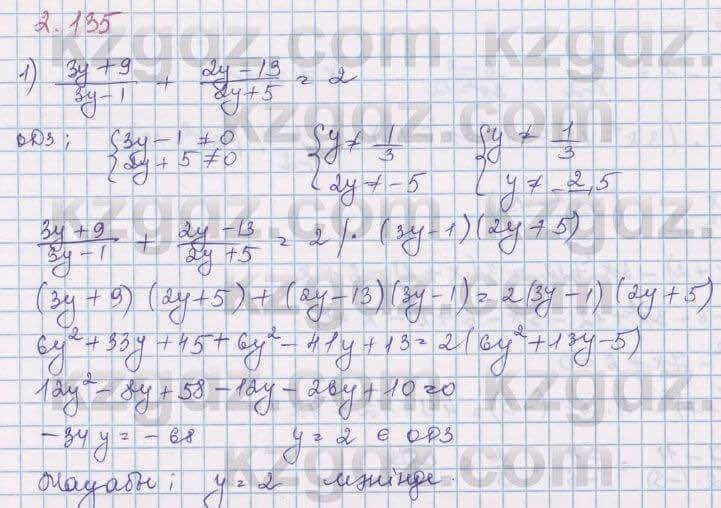 2.135
1) (3y+9)/(3y-1) + (2y-13)/(2y+5) = 2
ОДЗ; {3y-1≠0 {y≠1/3 {y≠1/3
{2y+5≠0 {2y≠-5 {y≠-2,5
(3y+9)/(3y-1) + (2y-13)/(2y+5) = 2 /· (3y-1)(2y+5)
(3y+9)(2y+5)+(2y-13)(3y-1)=2(3y-1)(2y+5)
6y²+33y+45+6y²-41y+13=2(6y²+13y-5)
12y²-8y+58-12y-26y+10=0
-34y=-68 y=2 ∈ ОДЗ
Жауабы; y=2 мәнінде.
kzgdz.com kzgdz.com